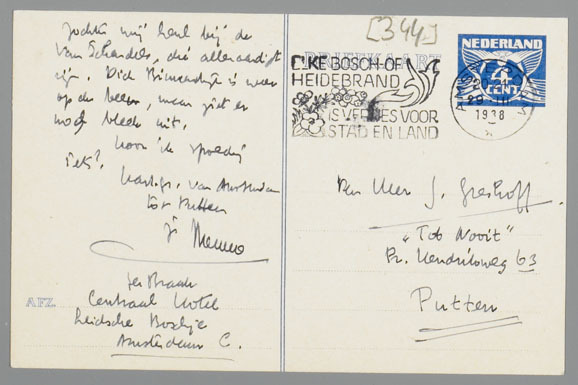 zochte mij heel bij de
Van Schendels, die alleraardigst
zijn. Dick Binnendijk is weer
op de been, maar ziet er
nog bleek uit.
Hoor ik spoedig
iets?
Hartgr. van Amsterdam
tot Putten
je Menno
ter Braak
AFZ. Centraal Hotel
Leidsche Boschje
Amsterdam C.
[344]
BRIEFKAART
ELKE BOSCH- OF
HEIDEBRAND
IS VERLIES VOOR
STAD EN LAND
NEDERLAND
4
CENT
AMSTERDAM
29 III
1938
Den Heer J. Greshoff
"Tob Nooit"
Pr. Hendrikweg 63
Putten